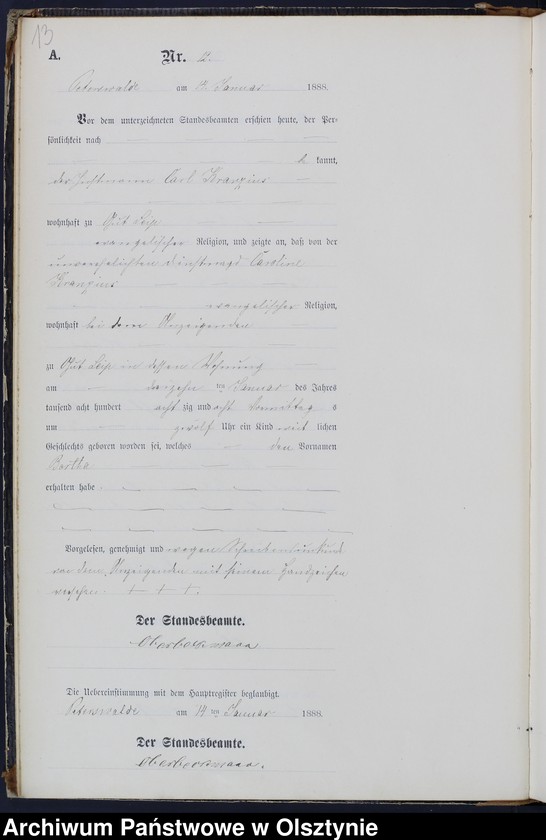 13
A.
Nr. 12.
Peterswalde am 14 Januar 1888.
Vor dem unterzeichneten Standesbeamten erschien heute, der Per-
sönlichkeit nach
kannt,
der Carl Kranzius
wohnhaft zu Gut
evangelischer Religion, und zeigte an, daß von der
unverehelichten Dienstmagd Caroline
Kranzius
evangelischer Religion,
wohnhaft bei dem Anzeigenden
zu Gut in dessen Wohnung
am dreizehn ten Januar des Jahres
tausend acht hundert acht zig und acht Vormittag s
um zwölf Uhr ein Kind weib lichen
Geschlechts geboren worden sei, welches den Vornamen
Bertha
erhalten habe
Vorgelesen, genehmigt und wegen Schreibensunkunde
von dem Anzeigenden mit seinem Handzeichen
versehen. + + +.
Der Standesbeamte.
Oberbockmann
Die Uebereinstimmung mit dem Hauptregister beglaubigt.
Peterswalde am 14 ten Januar 1888.
Der Standesbeamte.
Oberbockmann.
Archiwum Państwowe w Olsztynie